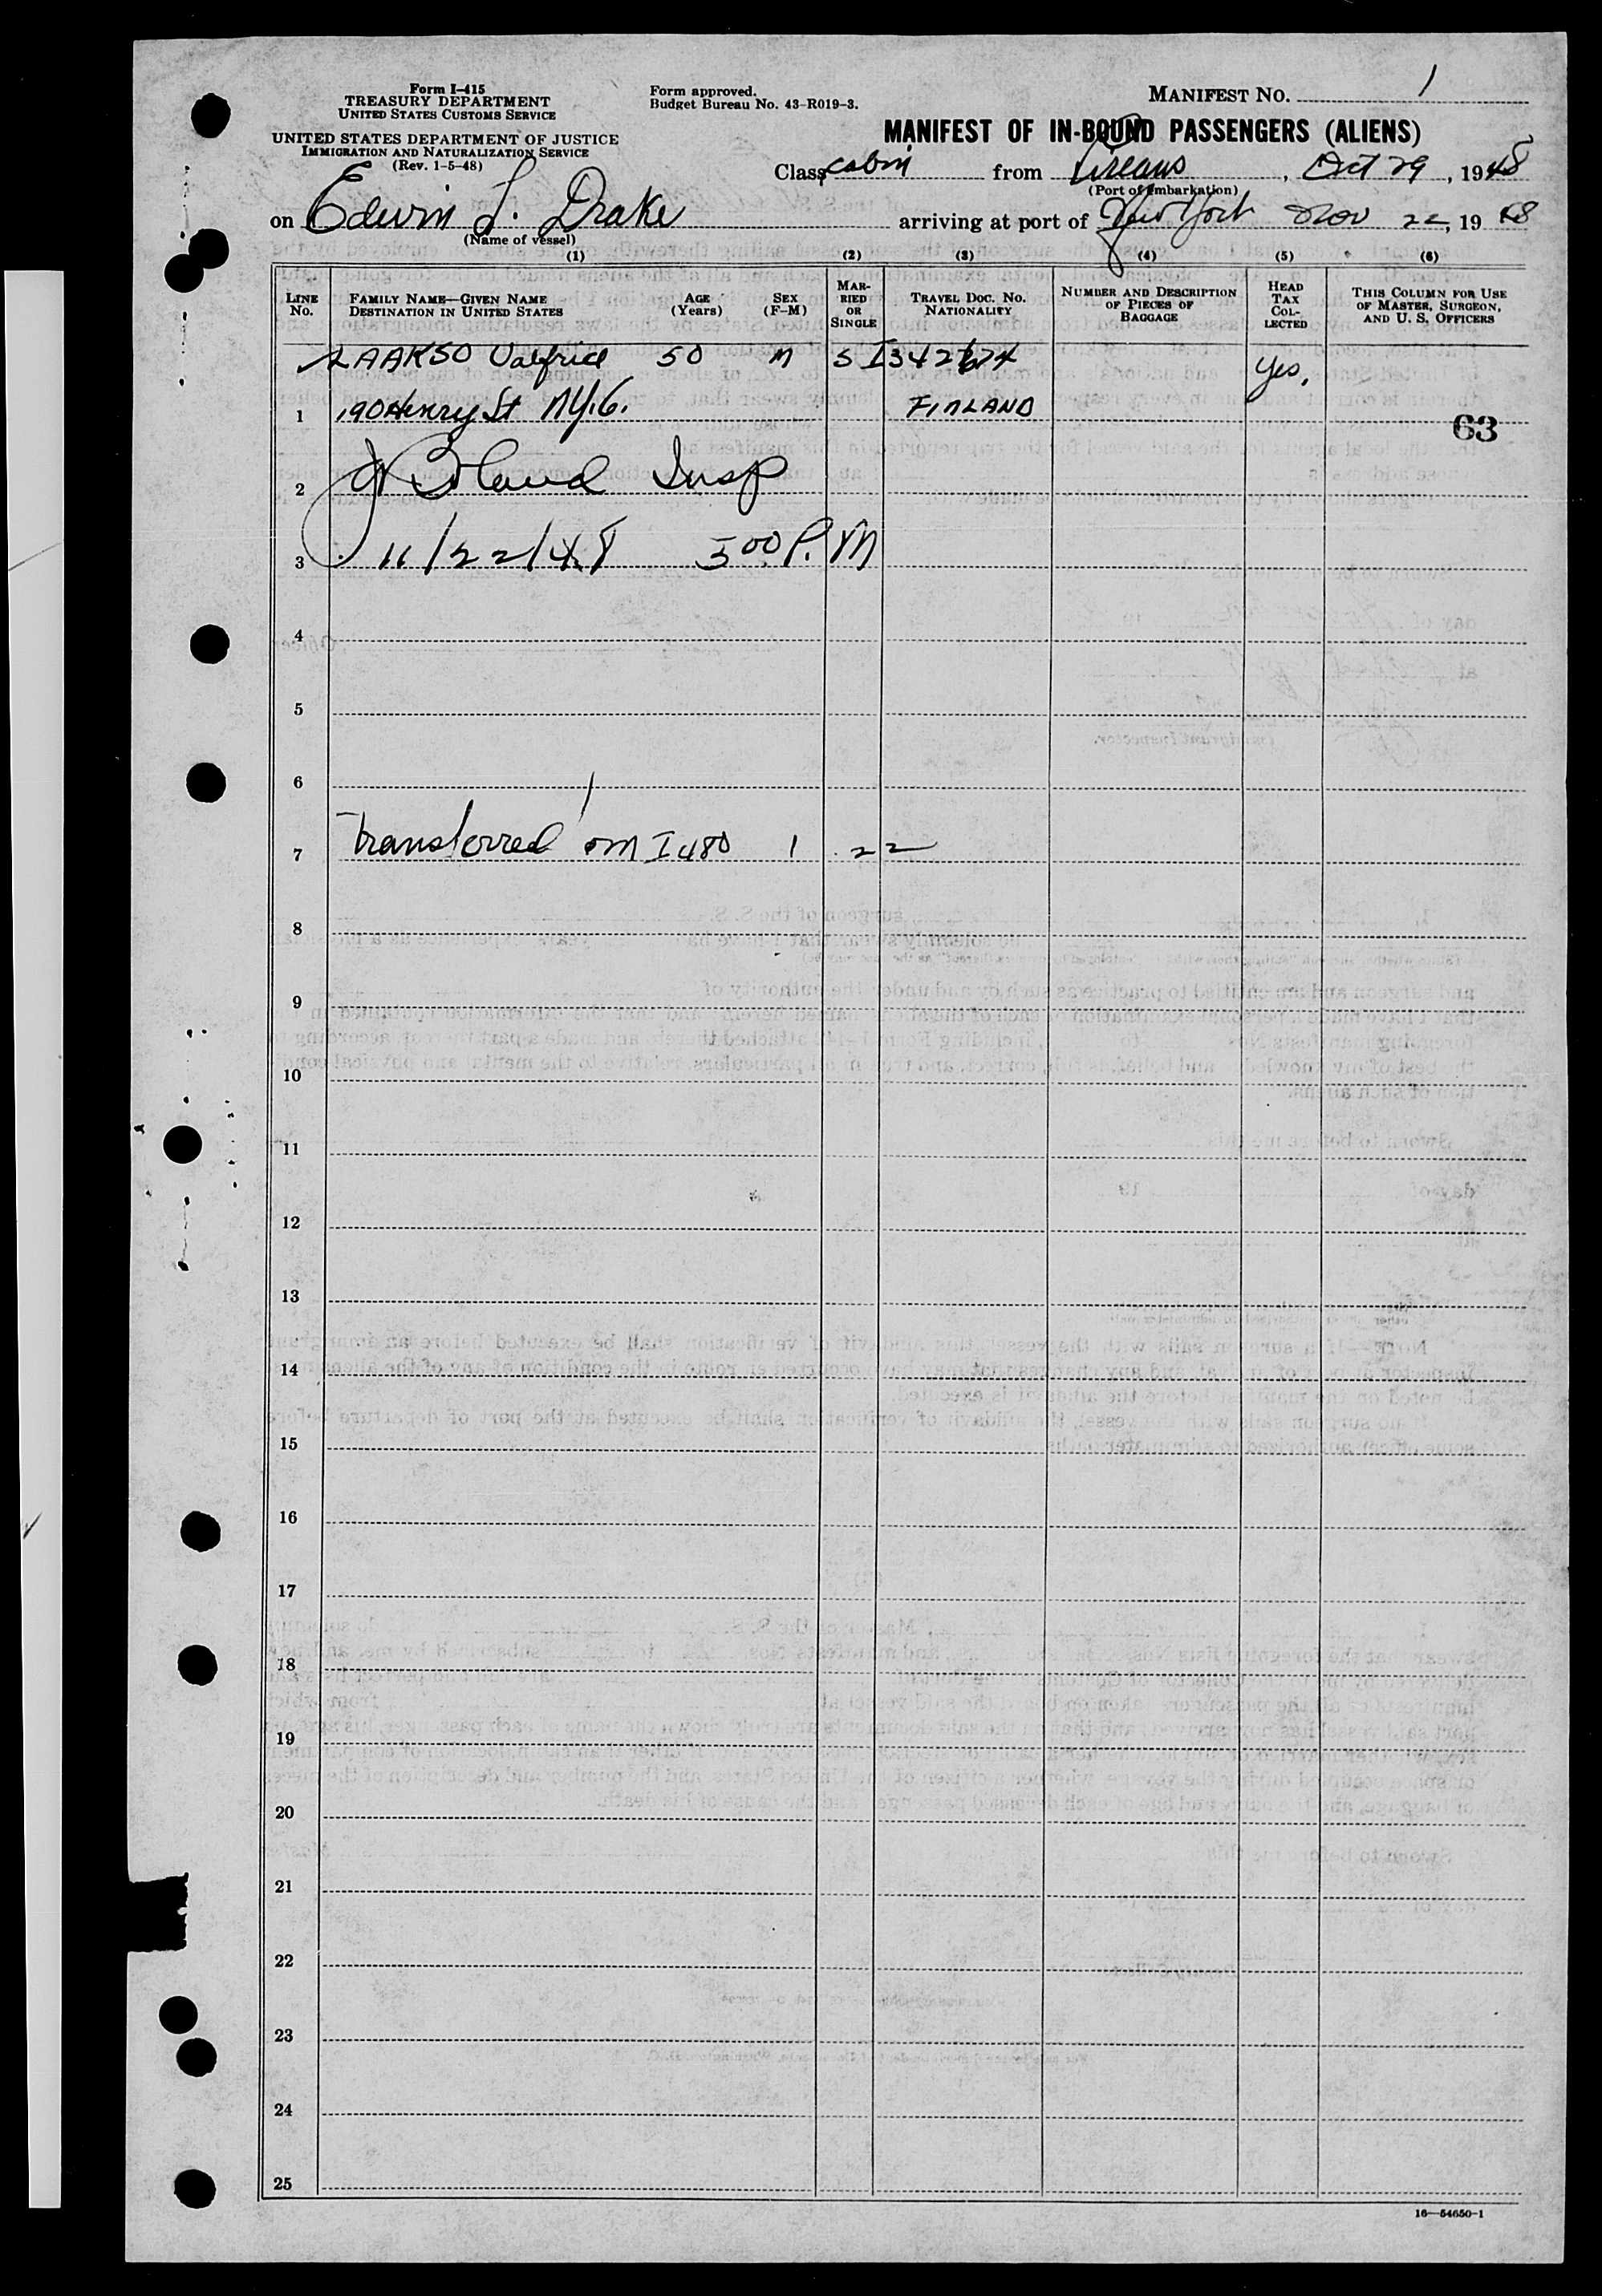 Form I-415
TREASURY DEPARTMENT
UNITED STATES CUSTOMS SERVICE
UNITED STATES DEPARTMENT OF JUSTICE
IMMIGRATION AND NATURALIZATION SERVICE
(Rev. 1-5-48)
Form approved.
Budget Bureau No. 43-R019-3.
MANIFEST NO. 1
MANIFEST OF IN-BOUND PASSENGERS (ALIENS)
Class cabin from , Oct 29, 1948
(Port of Embarkation)
on Edwin L. Drake arriving at port of New York Nov 22, 1948
(Name of vessel)
(1) (2) (3) (4) (5) (6)
LINE No. FAMILY NAME—GIVEN NAME DESTINATION IN UNITED STATES AGE (Years) SEX (F-M) MARRIED OR SINGLE TRAVEL DOC. NO. NATIONALITY NUMBER AND DESCRIPTION OF PIECES OF BAGGAGE HEAD TAX COLLECTED THIS COLUMN FOR USE OF MASTER, SURGEON, AND U. S. OFFICERS
LAAKSO Valfrid 50 M S Yes,
1 190 Henry St N.Y.C. FINLAND
63
2 Insp
3 11/22/48 5 00 P.M
4
5
6
7 Transferred I 480 1 22
8
9
10
11
12
13
14
15
16
17
18
19
20
21
22
23
24
25
16—54650-1